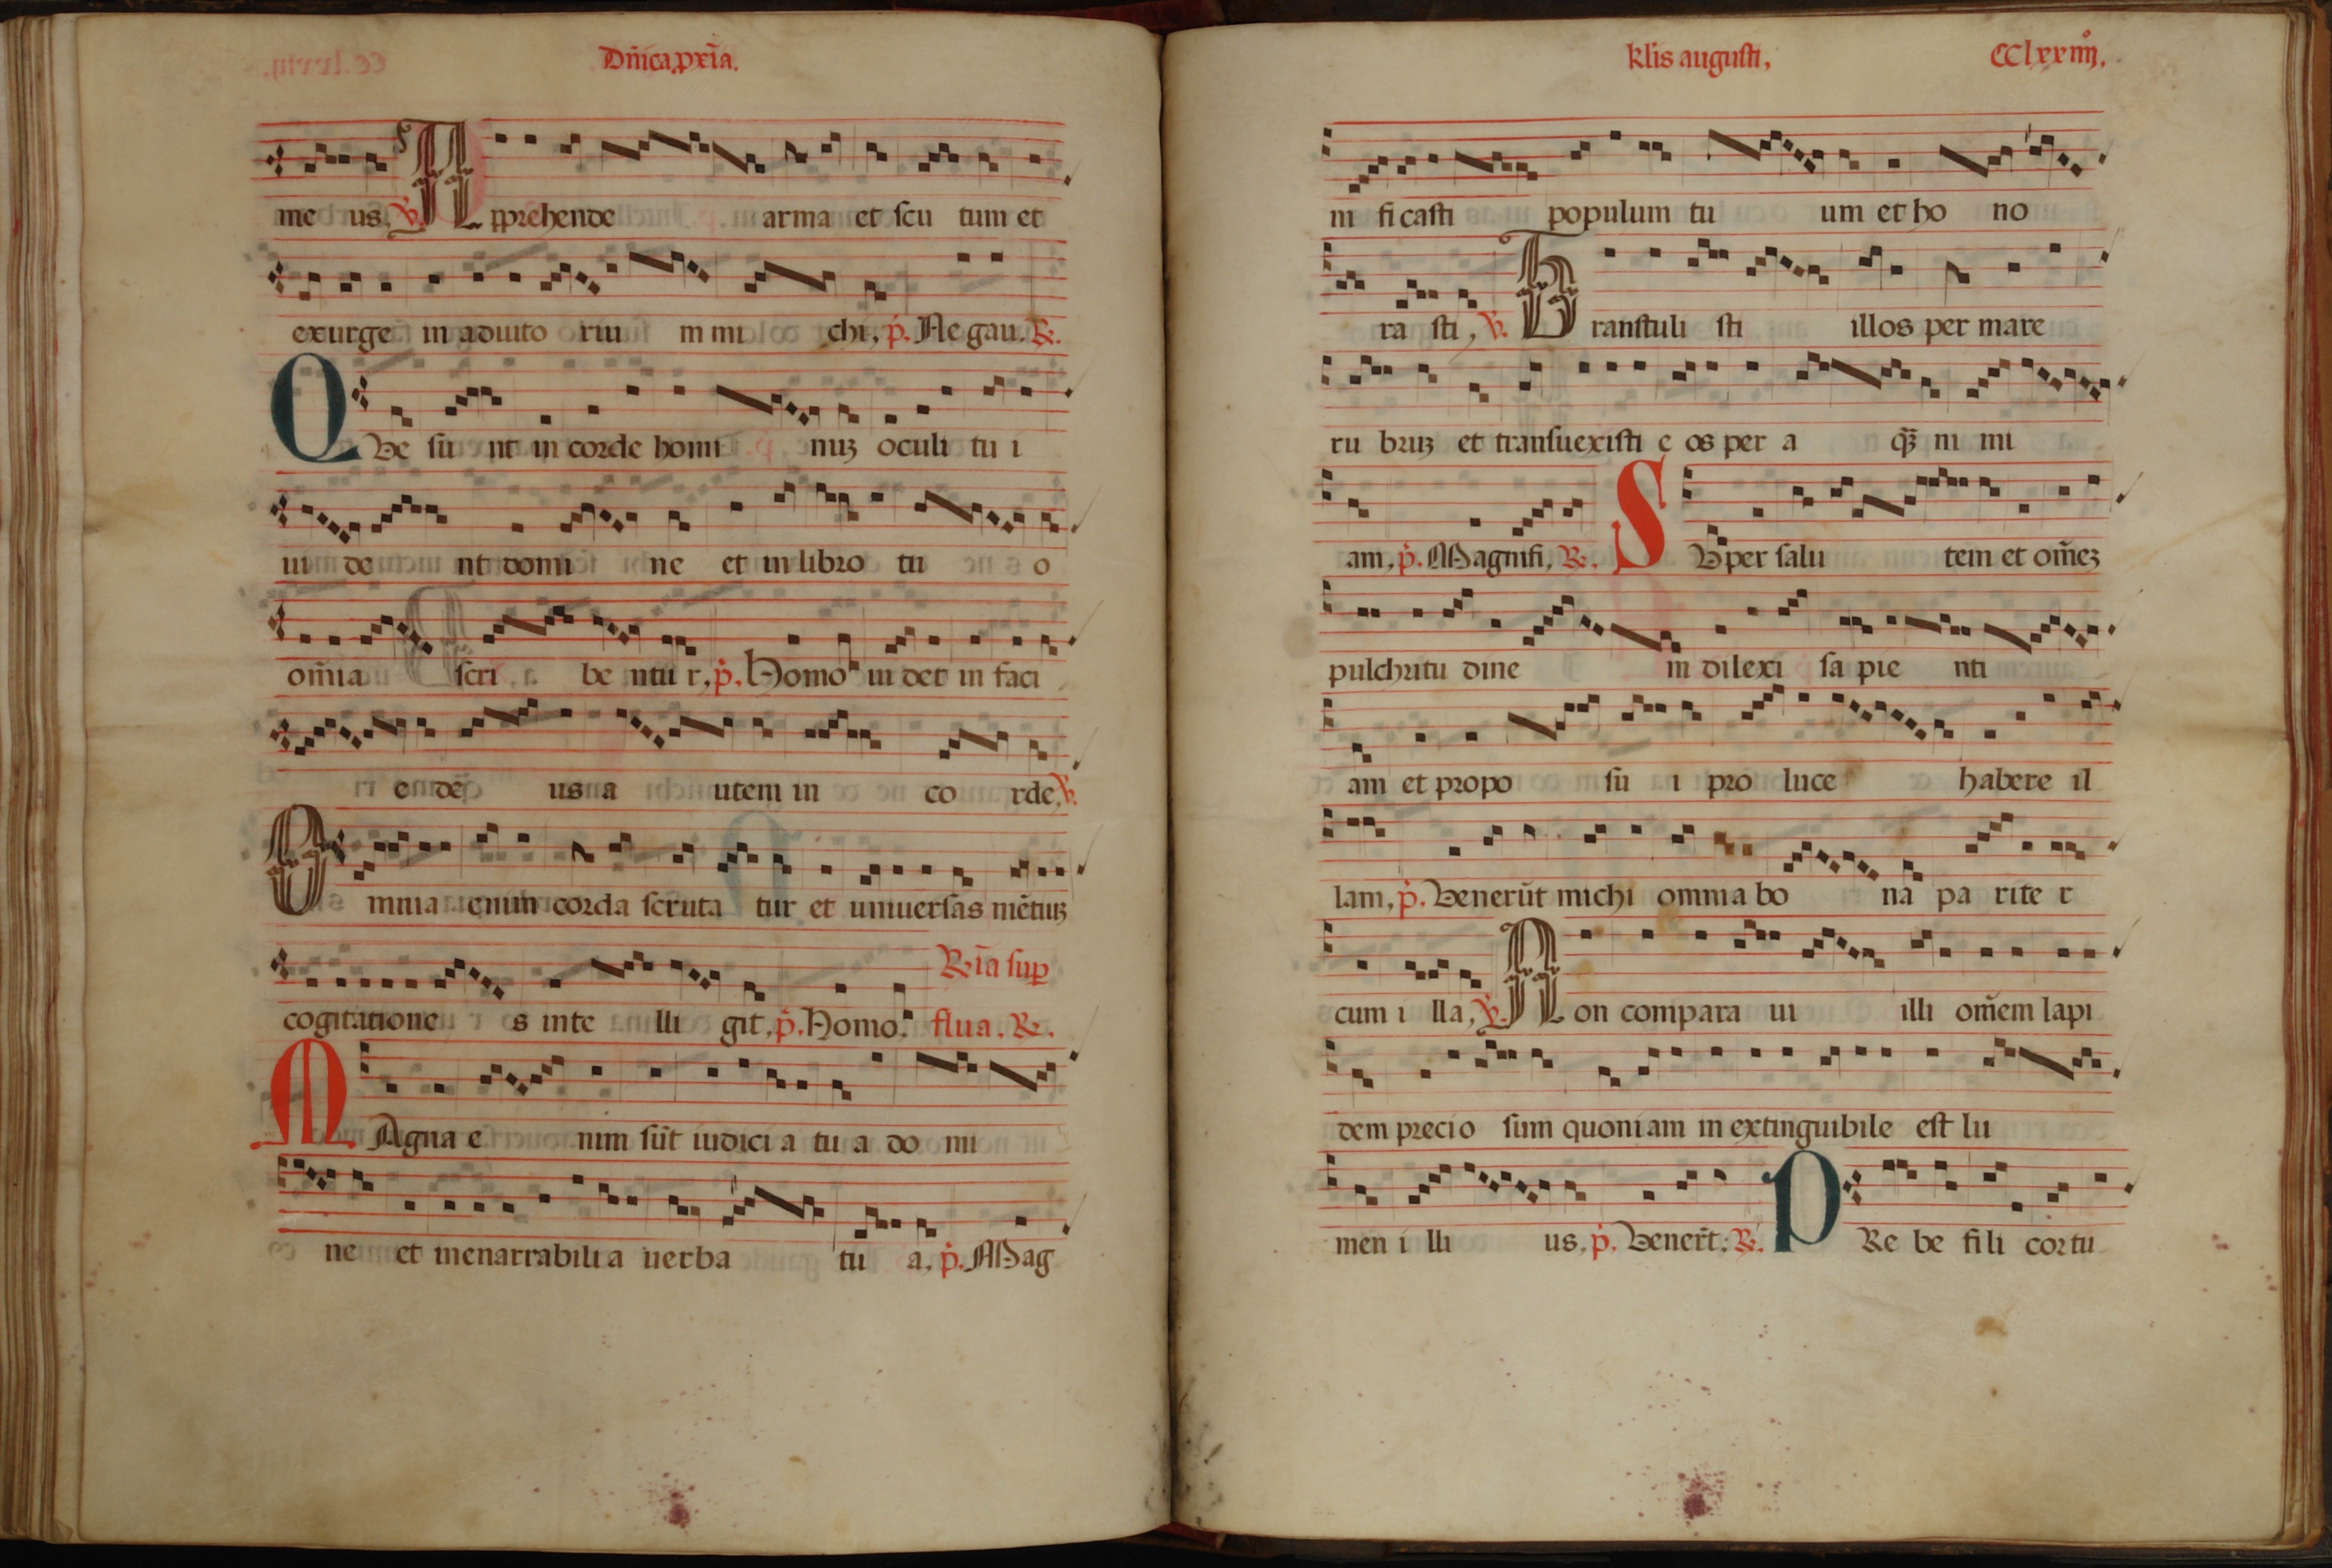 Dñica. pxĩa.
me us. ꝟ. Apprehende arma et scu tum et
exurge in adiuto riu m mi chi, p̃. Ne gau. ℟.
QVe su nt in corde homi nuꝫ oculi tu i
ui de nt domi ne et in libro tu o
om̃ia scri be ntu r, p̃. Homo ui det in faci
e de us a utem in co rde, ꝟ.
Omnia enim corda scruta tur et uniuersas mẽtiuꝫ
cogitatione s inte lli git, p̃. Homo. ℟ĩa sup
flua. ℟.
MAgna e nim sũt iudici a tu a do mi
ne et inenarrabili a uerba tu a, p̃. Mag
klis augusti, CClxxiiij.
ni fi casti populum tu um et ho no
ra sti, ꝟ. Transtuli sti illos per mare
ru bruꝫ et transuexisti e os per a q̃ꝫ ni mi
am, p̃. Magnifi, ℟. SVper salu tem et om̃eꝫ
pulchritu dine m dilexi sa pie nti
am et propo su i pro luce habere il
lam, p̃. Venerũt michi omnia bo na pa rite r
cum i lla, ꝟ. Non compara ui illi om̃em lapi
dem precio sum quoni am in extinguibile est lu
men i lli us, p̃. Venert̃. ℟. PRe be fi li cor tu